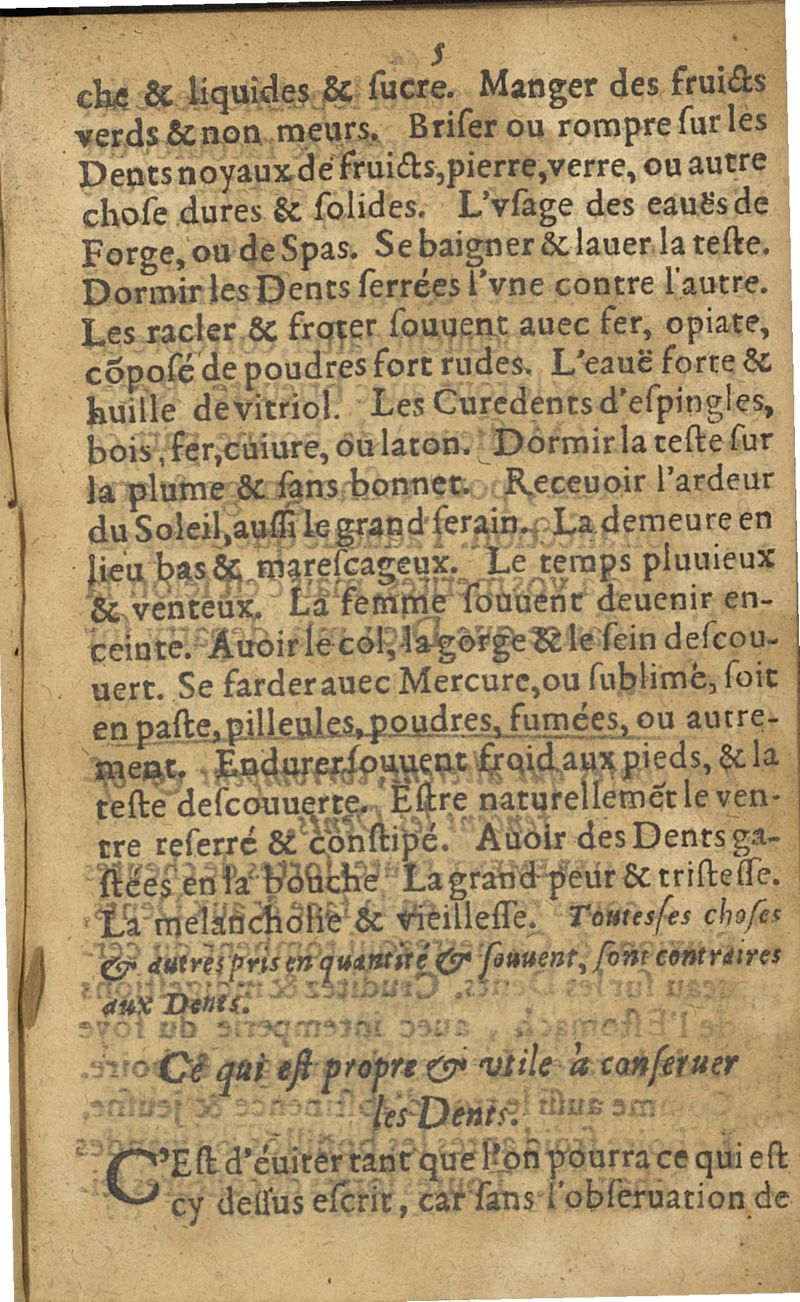 5
che & liquides & ſucre. Manger des fruicts
verds & non meurs. Briſer ou rompre ſur les
Dents noyaux de fruicts, pierre, verre, ou autre
choſe dures & ſolides. L'vſage des eauës de
Forge, ou de Spas. Se baigner & lauer la teſte.
Dormir les Dents ſerrées l'vne contre l'autre.
Les racler & froter ſouuent auec fer, opiate,
cõpoſé de poudres fort rudes. L'eauë forte &
huille de vitriol. Les Curedents d'eſpingles,
bois, fer, cuiure, ou laton. Dormir la teſte ſur
la plume & ſans bonnet. Receuoir l'ardeur
du Soleil, auſſi le grand ſerain. La demeure en
lieu bas & mareſcageux. Le temps pluuieux
& venteux. La femme ſouuent deuenir en-
ceinte. Auoir le col, la gorge & le ſein deſcou-
uert. Se farder auec Mercure, ou ſublimé, ſoit
en paſte, pilleules, poudres, fumées, ou autre-
ment. Endurer ſouuent froid aux pieds, & la
teſte deſcouuerte. Eſtre naturellemẽt le ven-
tre reſerré & conſtipé. Auoir des Dents ga-
ſtées en la bouche La grand peur & triſteſſe.
La melancholie & vieilleſſe. Toutes ſes choſes
& autres pris en quantité & ſouuent, ſont contraires
aux Dents.
Ce qui eſt propre & vtile à conſeruer
les Dents.
C'Eſt d'éuiter tant que l'on pourra ce qui eſt
cy deſſus eſcrit, car ſans l'obſeruation de